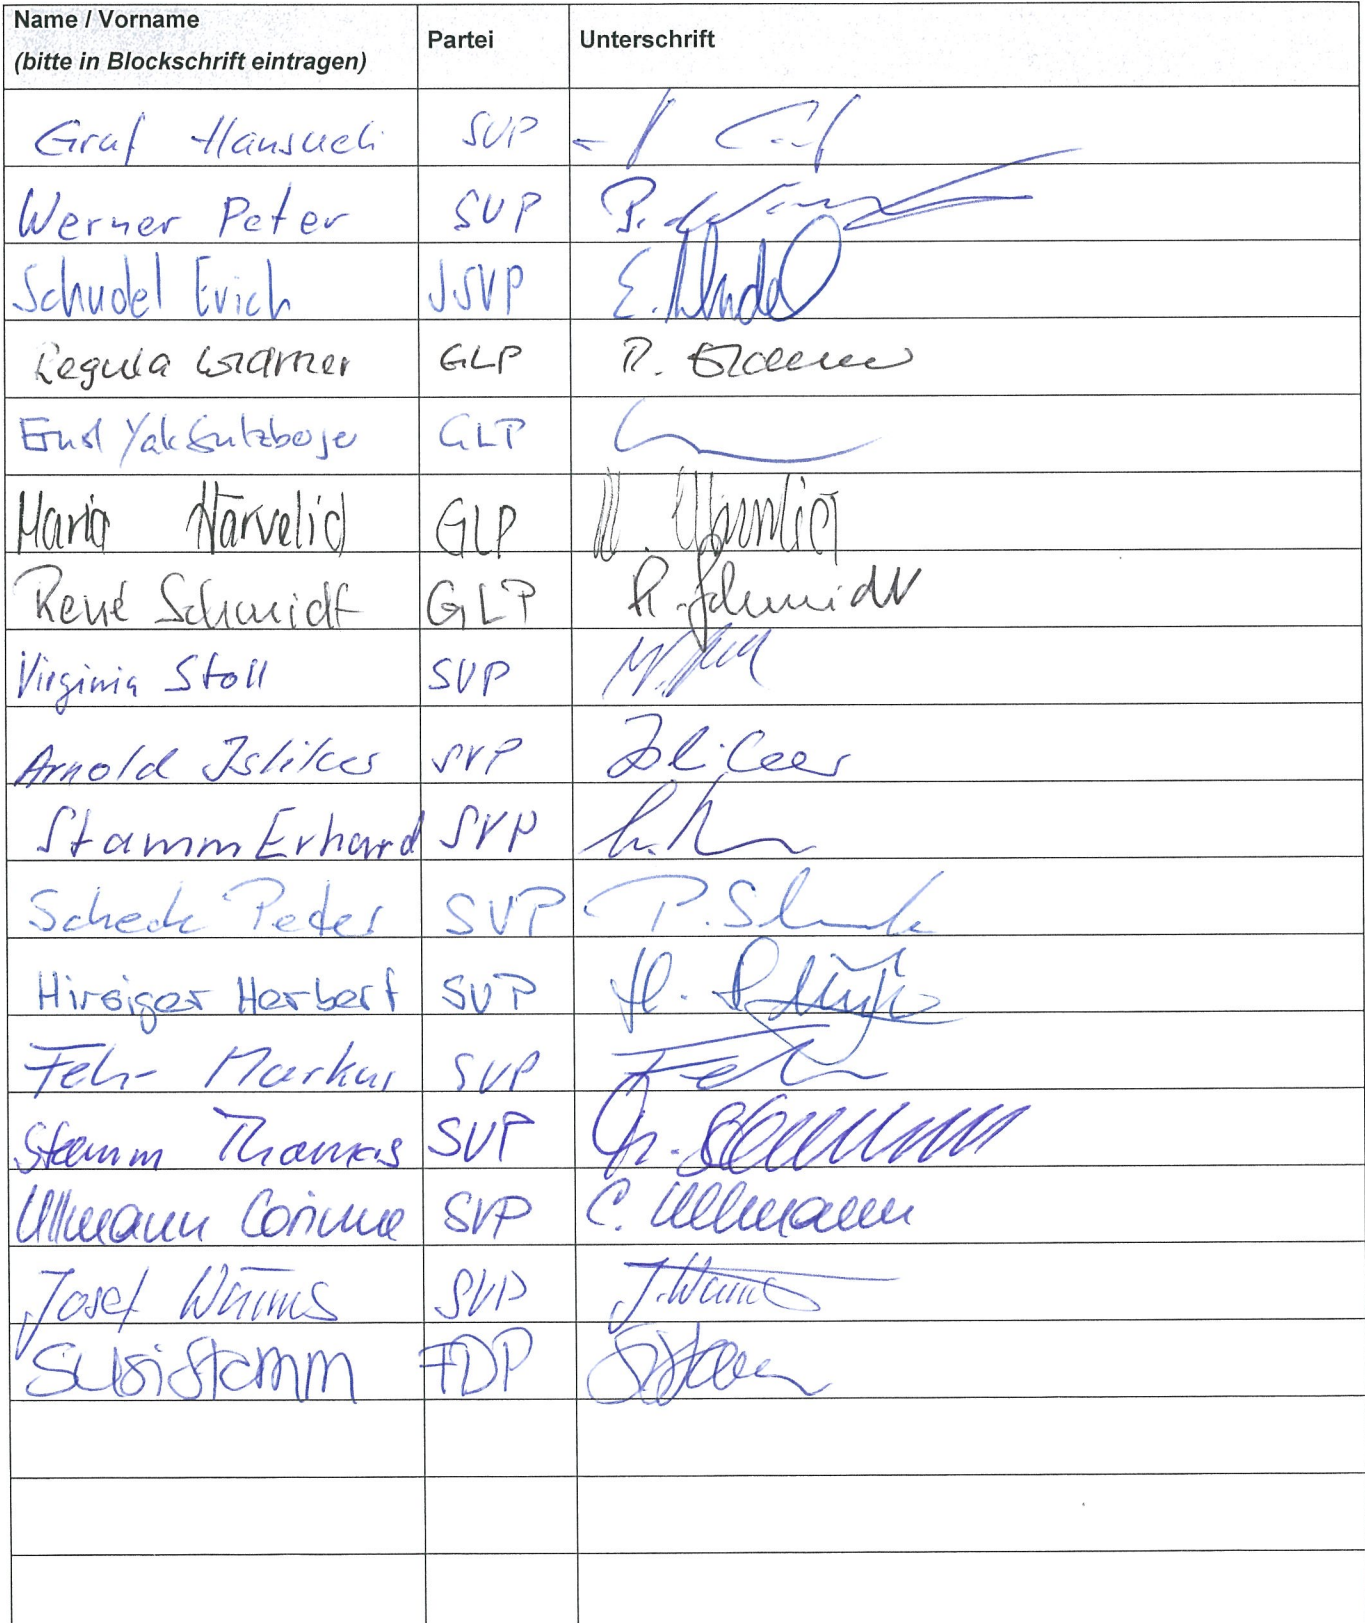 Name / Vorname
(bitte in Blockschrift eintragen) Partei Unterschrift
Graf Hansueli SVP
Werner Peter SVP
Schudel Erich JSVP E. Schudel
Regula Widmer GLP R.
Ernst Yak Sulzberger GLP
Maria Härvelid GLP
René Schmidt GLP R. Schmidt
Virginia Stoll SVP
Arnold Isliker SVP Isliker
Stamm Erhard SVP
Scheck Peter SVP P. Scheck
Hirsiger Herbert SVP H.
Fehr Markus SVP Fehr
Stamm Thomas SVP Th. Stamm
Ullmann Corinne SVP C. Ullmann
Josef Würms SVP J. Würms
Susi Stamm FDP S. Stamm